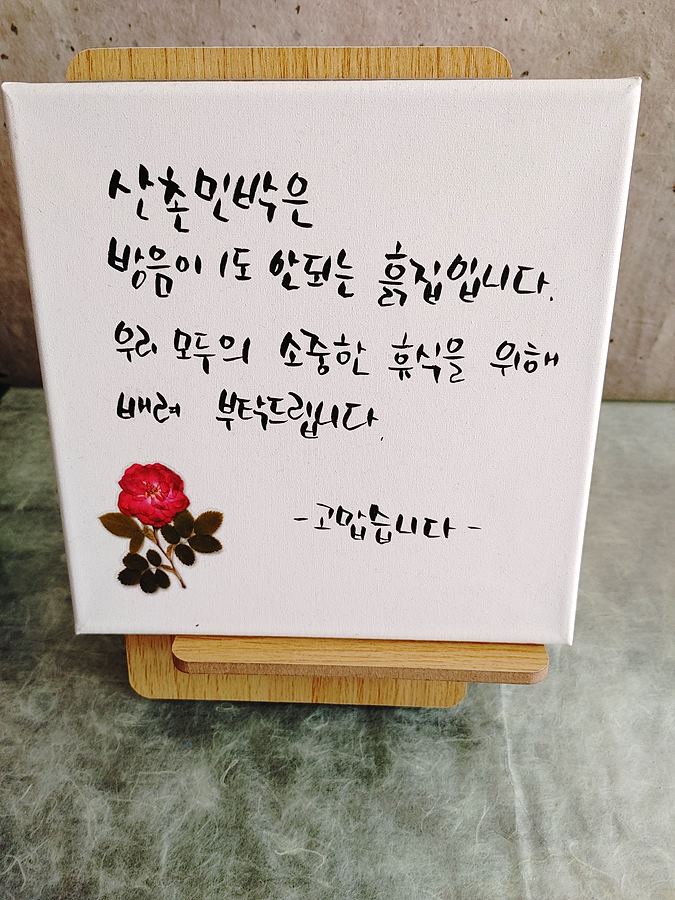 산촌민박은
방음이 1도 안되는 흙집입니다.
우리 모두의 소중한 휴식을 위해
배려 부탁드립니다.
-고맙습니다-